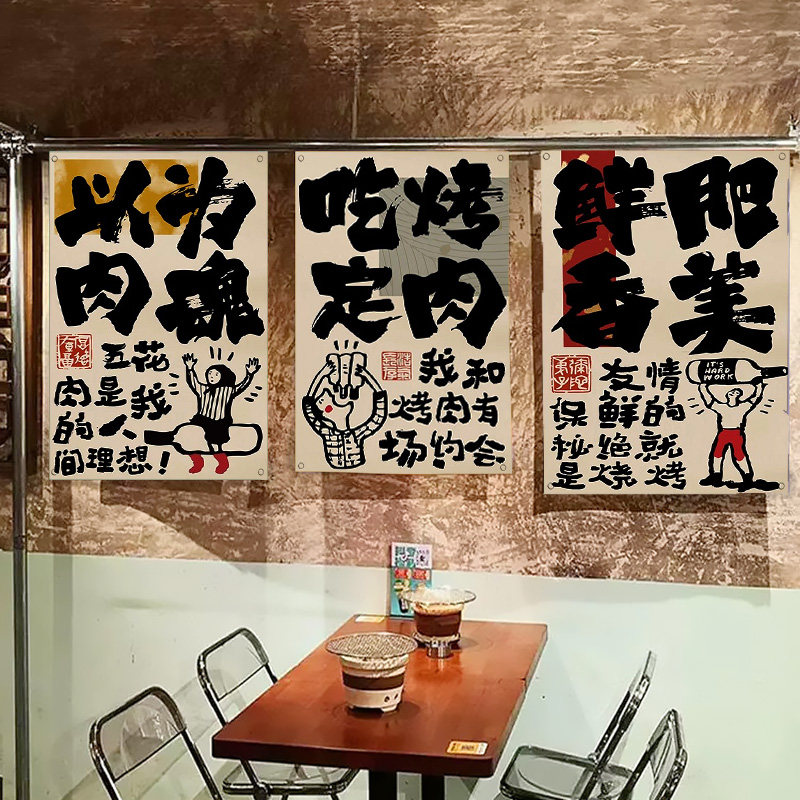 以肉
为魂
五花
肉是我
的人
间理想!
吃定
烤肉
我和
烤肉有
场约会
鲜香
肥美
友情
保鲜的
秘绝就
是烧烤
IT'S
HARD
WORK